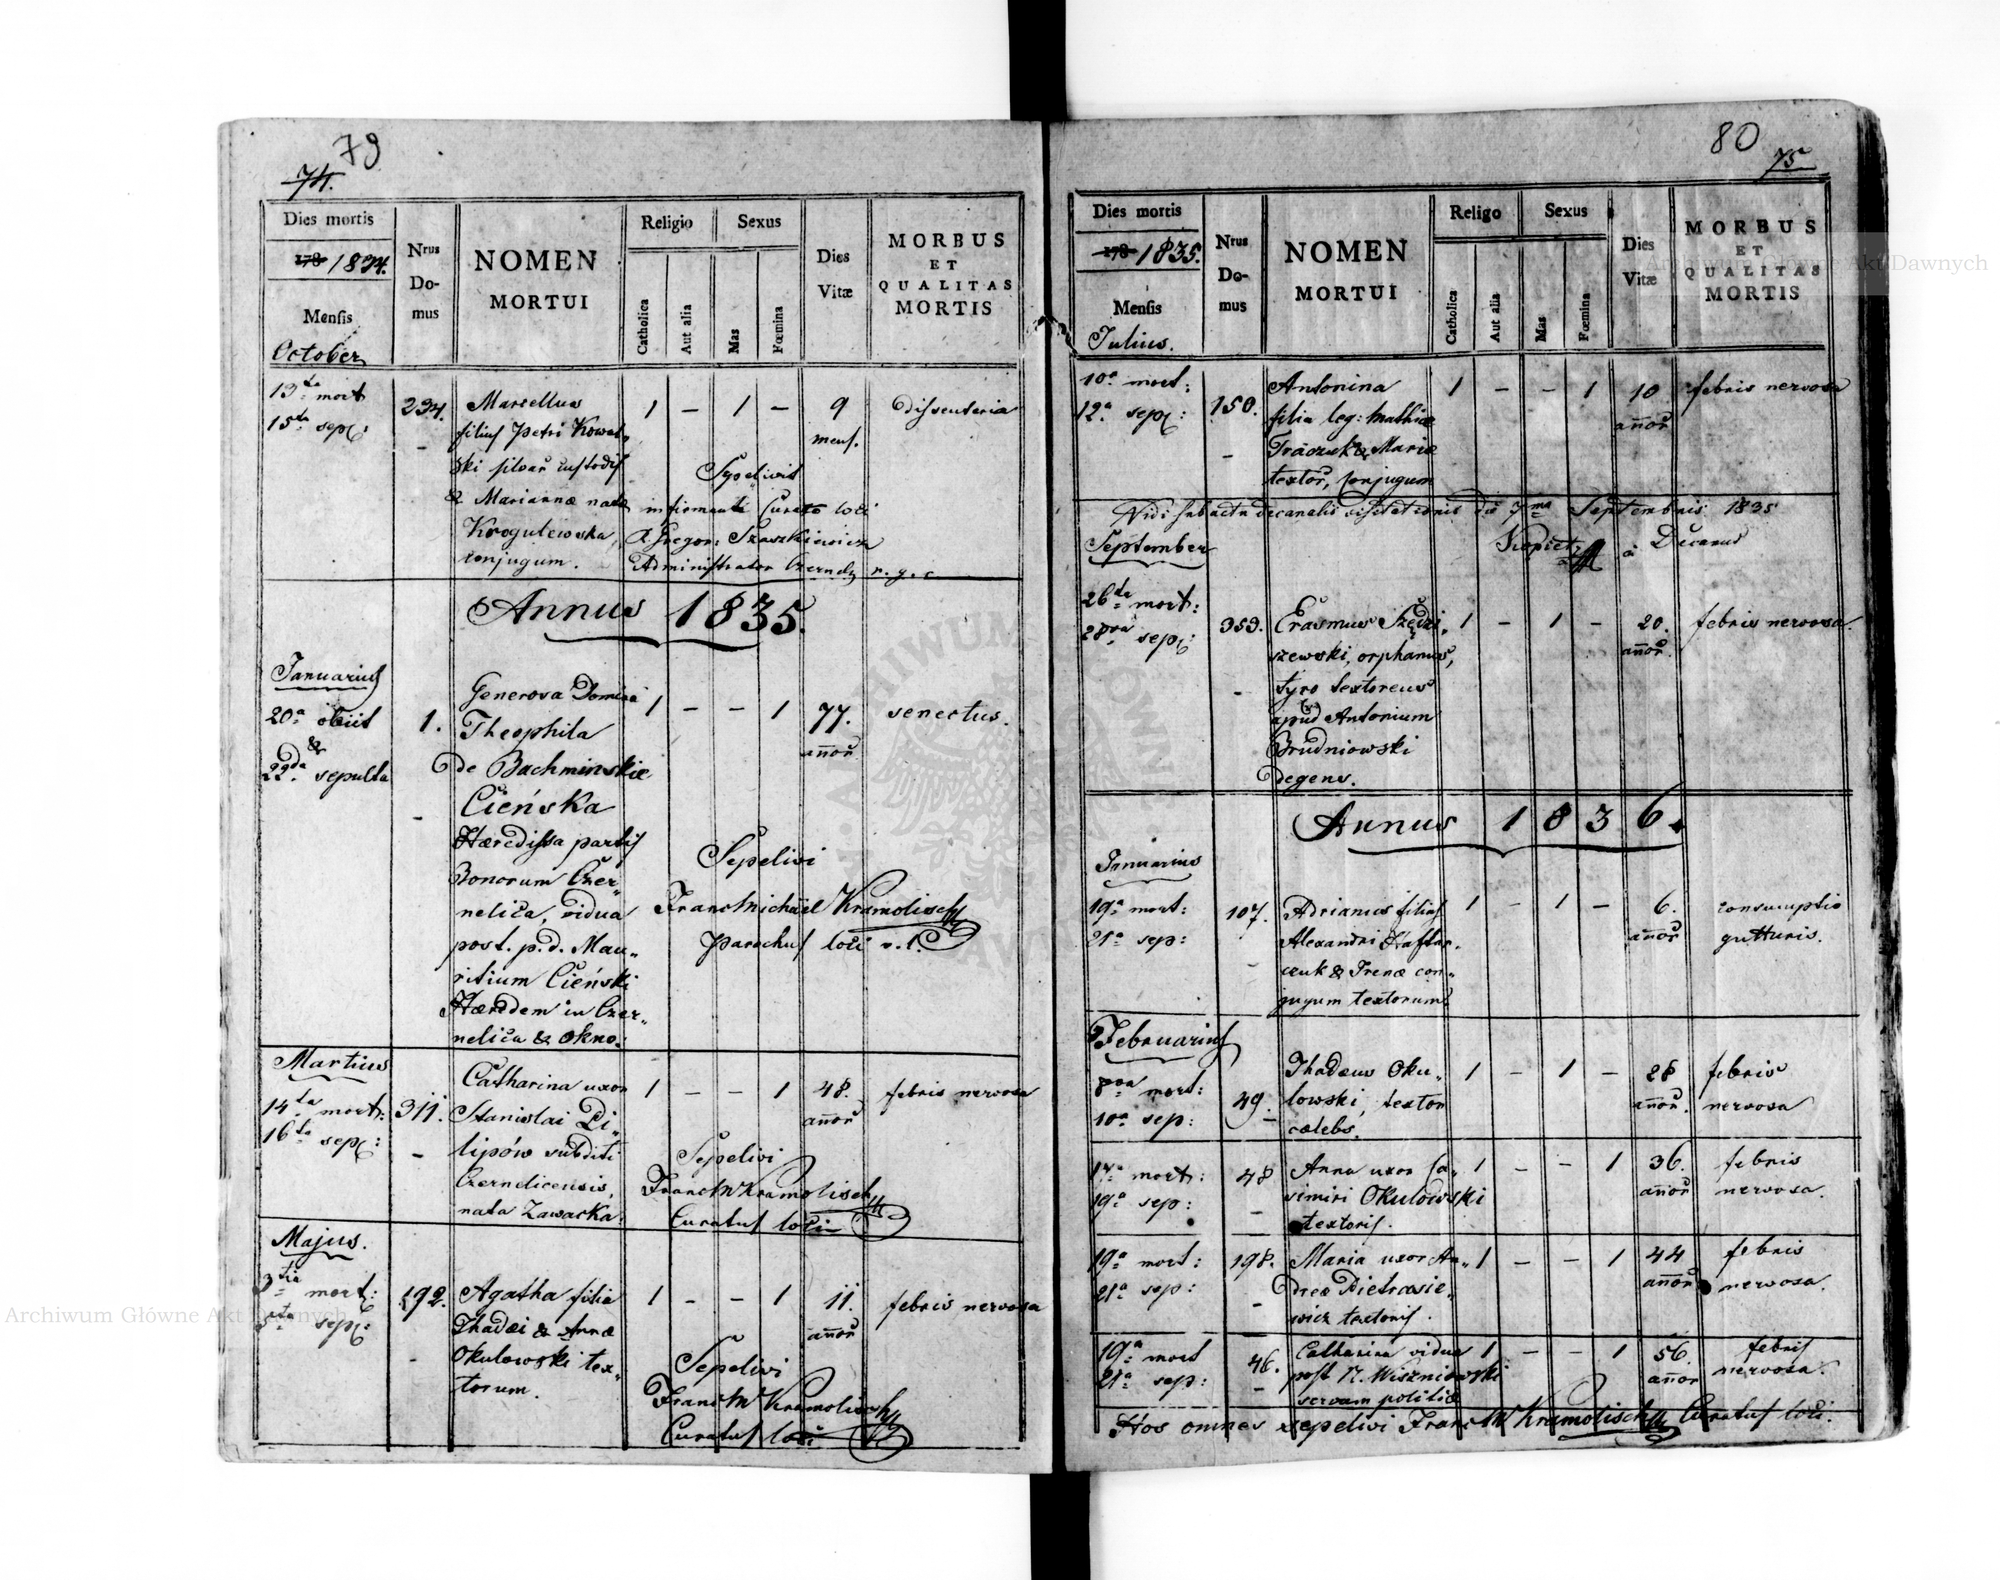 79
74.
Dies mortis
178 1834.
Mensis
October
Nrus
Do-
mus
NOMEN
MORTUI
Religio
Catholica
Aut alia
Sexus
Mas
Fœmina
Dies
Vitæ
MORBUS
ET
QUALITAS
MORTIS
13ta mort
15ta sep:
234.
Marcellus
filius Petri Kowal„
ski silvar custodis
& Mariannæ nata
Kogutewska,
conjugum.
1 – 1 –
9
mens.
dissenteria
Sepelivit
infirmanti Curato loci
A. Gregor: Szaszkiewicz
Administrator Czernel: r. g. c
Annus 1835.
Januarius
20a obiit
&
22da sepulta
1.
Generosa Domina
Theophila
de Bachminskie
Cieńska
Hæredissa partis
Bonorum Czer„
nelica, vidua
post. p. d. Mau„
ritium Cieński
Hæredem in Czer„
nelica & Okno.
1 – – 1
77.
annor
senectus.
Sepelivi
Franc Michäel Kramolisch
Parochus loci r. l.
Martius
14ta mort:
16ta sep:
311.
Catharina uxor
Stanislai Di„
lipów subditi
Czernelicensis,
nata Zawacka.
1 – – 1
48.
annor
febris nervosa
Sepelivi
Franc M Kramolisch
Curatus loci
Majus.
3tia mort:
5ta sep:
192.
Agatha filia
Thadæi & Annæ
Okulowski tex„
torum.
1 – – 1
11.
annor
febris nervosa
Sepelivi
Franc M Kramolisch
Curatus loci
80
75
Dies mortis
178 1835.
Mensis
Julius.
Nrus
Do-
mus
NOMEN
MORTUI
Religo
Catholica
Aut alia
Sexus
Mas
Fœmina
Dies
Vitæ
MORBUS
ET
QUALITAS
MORTIS
10a mort:
12a sep:
150.
Antonina
filia leg: Mathiæ
Traczuk & Mariæ
textor, conjugum
1 – – 1
10
annor
febris nervosa
Vidi sub actu decanalis visitationis die 7ma Septembris 1835
Decanus
September
26ta mort:
28va sep:
359.
Erasmus Szędzi„
szewski, orphanus,
tyro textoreus
apud Antonium
Brudniowski
degens.
1 – 1 –
20.
annor.
febris nervosa.
Annus 1836.
Januarius
19a mort:
21a sep:
107.
Adrianus filius
Alexandri Haftar„
czuk & Irenæ con„
jugum textorum.
1 – 1 –
6.
annor
consumptio
gutturis.
Februarius
8va mort:
10a sep:
49.
Thadæus Oku„
lowski, textor
cælebs.
1 – 1 –
28
annor.
febris
nervosa
17a mort:
19a sep:
48
Anna uxor Ca„
simiri Okulowski
textoris.
1 – – 1
36.
annor
febris
nervosa.
19a mort:
21a sep:
198.
Maria uxor An„
dreæ Pietrasie„
wicz textoris.
1 – – 1
44
annor
febris
nervosa.
19a mort
21a sep:
46.
Catharina vidua
post N. Wiszniowski
servam politiæ
1 – – 1
56.
annor
febris
nervosa.
Hos omnes sepelivi Franc M Kramolisch Curatus loci.
Archiwum Główne Akt Dawnych
Archiwum Główne Akt Dawnych